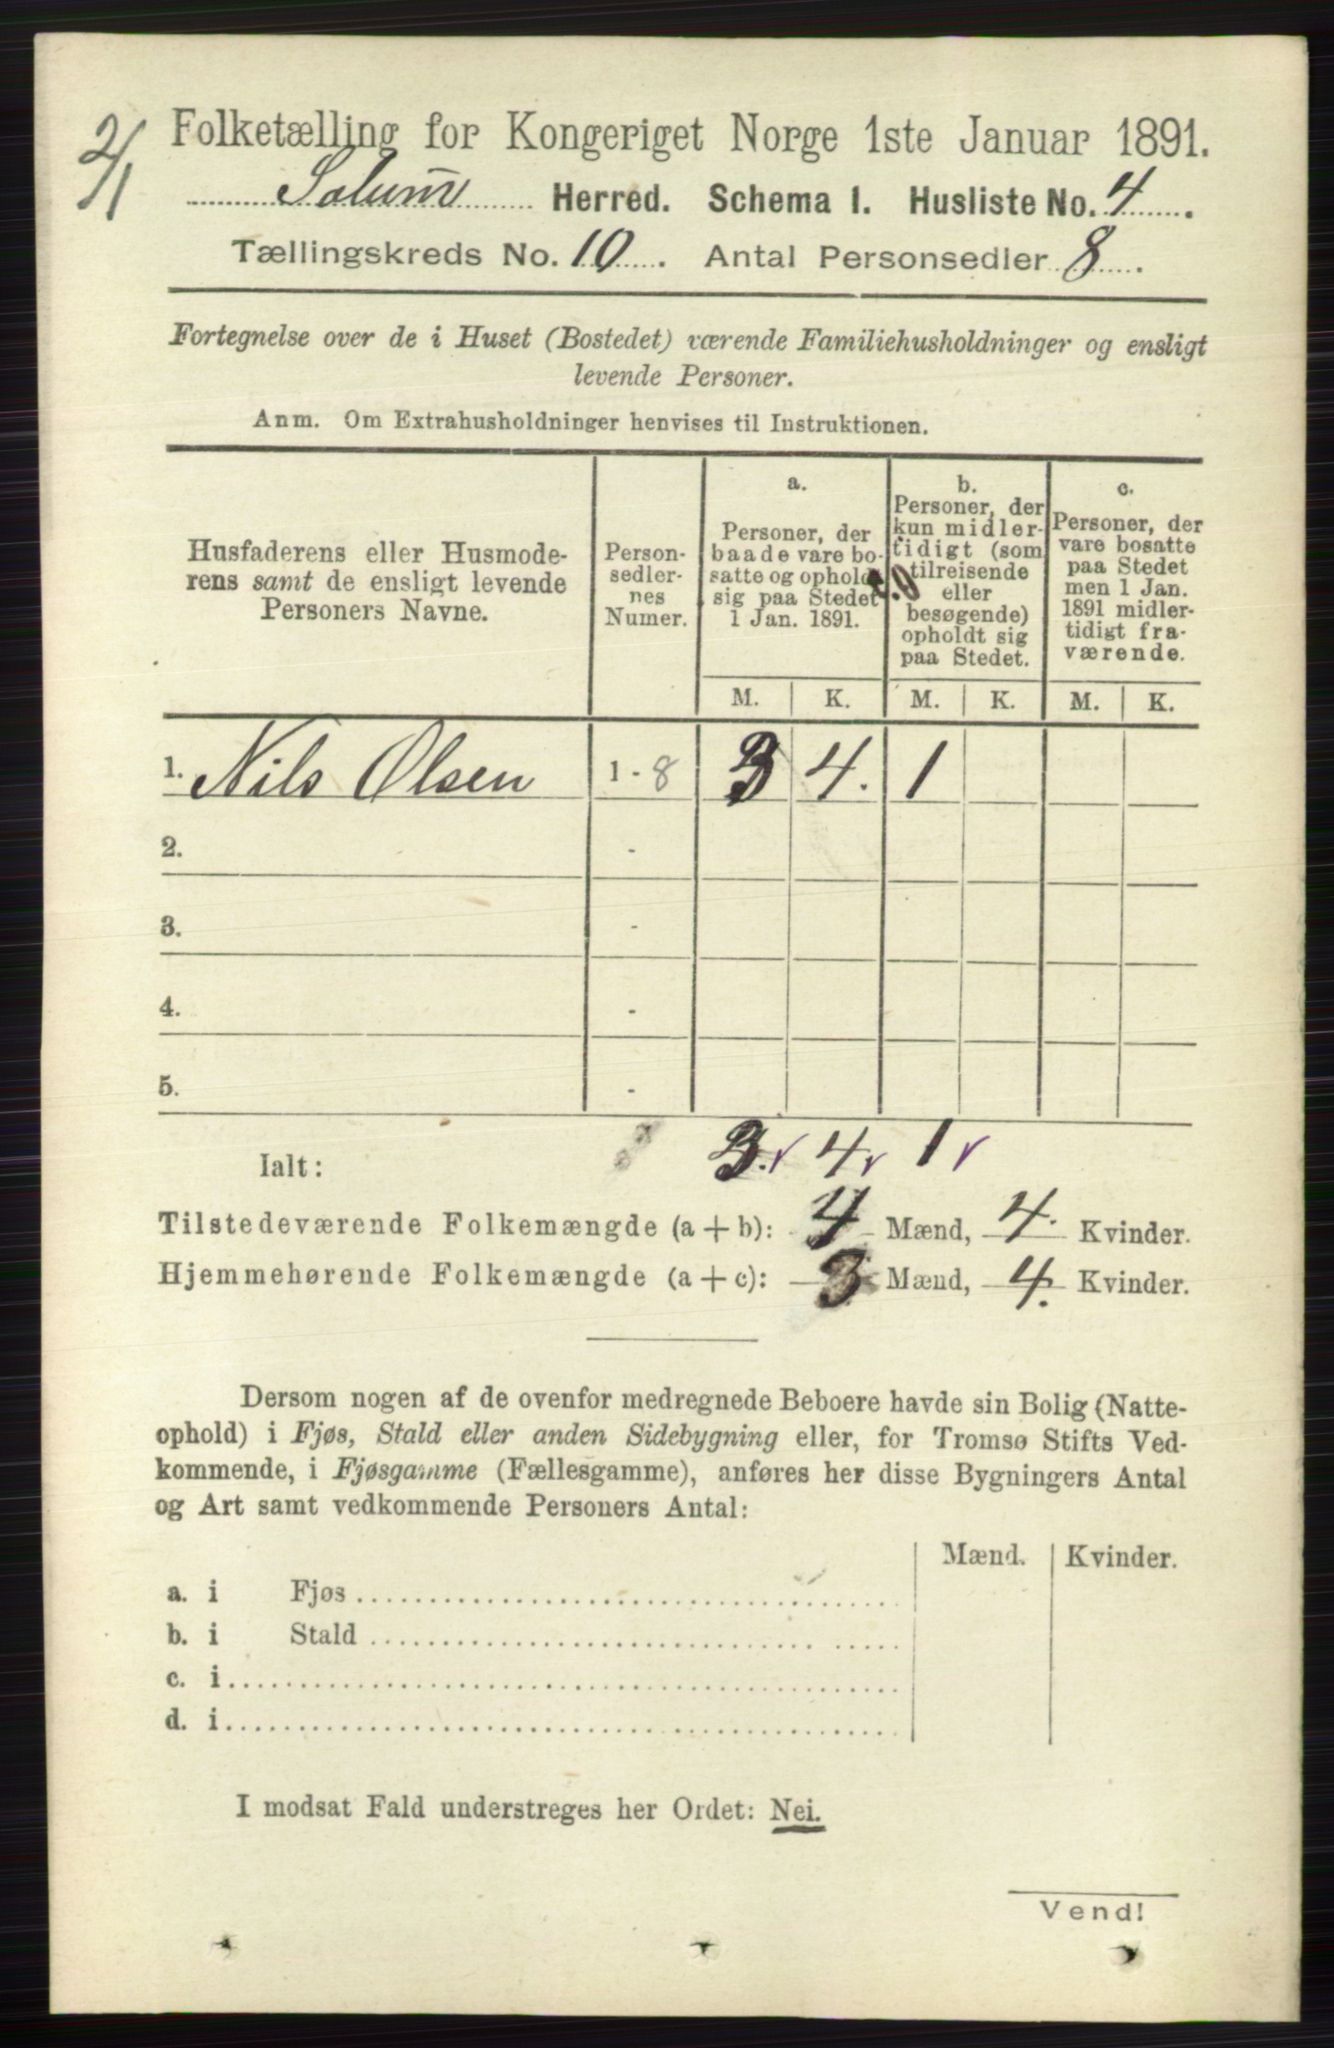 2/1
Folketælling for Kongeriget Norge 1ste Januar 1891.
Solum Herred. Schema 1. Husliste No. 4.
Tællingskreds No. 10. Antal Personsedler 8.
Fortegnelse over de i Huset (Bostedet) værende Familiehusholdninger og ensligt
levende Personer.
Anm. Om Extrahusholdninger henvises til Instruktionen.
Husfaderens eller Husmode-
rens samt de ensligt levende
Personers Navne.
Person-
sedler-
nes
Numer.
a.
Personer, der
baade vare bo-
satte og opholdt
sig paa Stedet
1 Jan. 1891.
b.
Personer, der
kun midler-
tidigt (som
tilreisende
eller
besøgende)
opholdt sig
paa Stedet.
c.
Personer, der
vare bosatte
paa Stedet
men 1 Jan.
1891 midler-
tidigt fra-
værende.
M. K. M. K. M. K.
1. Nils Olsen 1 - 8 3 4. 1
2. -
3. -
4. -
5. -
Ialt: 3. 4 1
Tilstedeværende Folkemængde (a + b): 4 Mænd, 4. Kvinder.
Hjemmehørende Folkemængde (a + c): 3 Mænd, 4. Kvinder.
Dersom nogen af de ovenfor medregnede Beboere havde sin Bolig (Natte-
ophold) i Fjøs, Stald eller anden Sidebygning eller, for Tromsø Stifts Ved-
kommende, i Fjøsgamme (Fællesgamme), anføres her disse Bygningers Antal
og Art samt vedkommende Personers Antal:
Mænd. Kvinder.
a. i Fjøs
b. i Stald
c. i
d. i
I modsat Fald understreges her Ordet: Nei.
Vend!